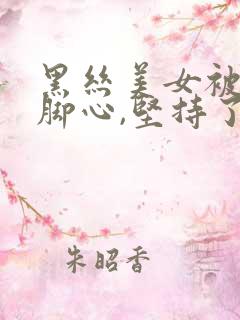 黑丝美女被
脚心,坚持了
朱昭香